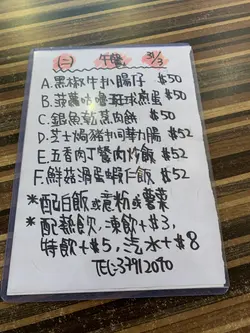 (二) 午餐 31/3
A.黑椒牛扒腸仔 $50
B.菠蘿咕嚕班球煎蛋 $50
C.銀魚乾蒸肉餅 $50
D.芝士焗豬扒同華力腸 $52
E.五香肉丁餐肉炒飯 $52
F.鮮菇滑蛋蝦仁飯 $52
*配白飯或意粉或薯菜
*配熱飲,凍飲+$3,
特飲+$5,汽水+$8
TEL:37912070